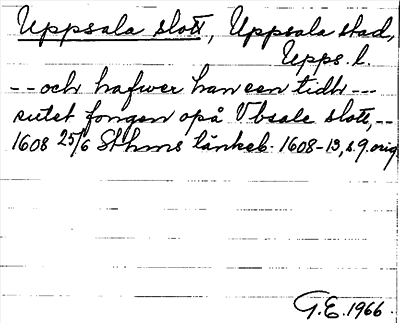 Uppsala slott, Uppsala stad,
Upps. l.
-- och hafwer han een tidh ---
sutet fongen opå Vbsale slott, --
1608 25/6 Sthms tänkeb. 1608-13, s. 9. orig.
G.E. 1966.